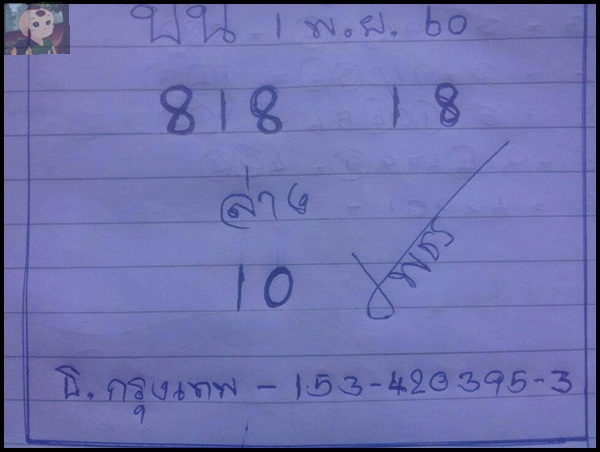 บน 1 พ.ย. 60
818 18
ล่าง
10
ธ. กรุงเทพ - 153-420395-3